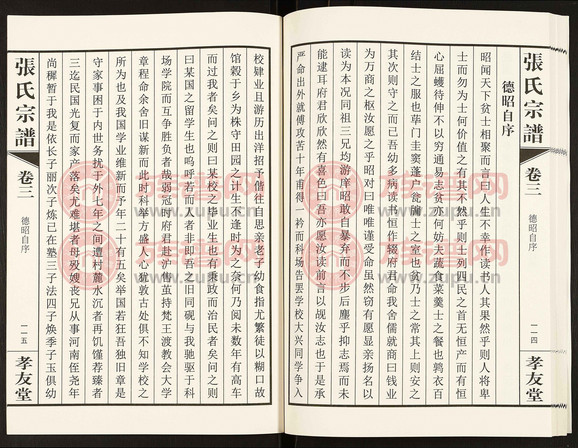 張氏宗譜
卷三
德昭自序
一二四
孝友堂
德昭自序
昭闻天下贫士相聚而言曰人生不幸作读书人其果然乎则人将卑
士而勿为士何价值之有其不然乎则士列四民之首无恒产而有恒
心屈蠖待伸不以穷通易志贫亦何妨夫蔬食菜羹士之餐也鹑衣百
结士之服也荜门圭窦蓬户瓮牖士之室也贫乃士之常其上则安之
其次则守之而已吾幼多病读书恒作辍府君命我舍儒就商曰钱业
为万商之枢汝愿之乎昭对曰唯唯谨受命虽然窃有愿显亲扬名以
读为本况同祖三兄均游庠昭敢自暴弃而不步后尘乎抑志焉而未
能逮耳府君欣欣然有喜色曰吾亦愿汝读前言以觇汝志也于是承
严命出外就傅攻苦十年甫得一衿而科场告罢学校大兴同学争入
校肄业且游历出洋招予偕往自思亲老子幼食指尤繁徒以糊口故
馆榖于乡为株守田园之计生不逢时为之奈何乃阅未数年有高车
而过我者矣问之则曰某校之毕业生也有秉政而治民者矣问之则
曰某国之留学生也呜呼若而人者非即吾之旧同砚与我驰驱于科
场学院而互争胜负者哉弱冠时府君赴沪售茧持梵王渡教会大学
章程命余舍旧谋新而此时科举方盛人心犹敦古处俱不知学校之
所为也及我国学业维新而予年二十有五矣举国若狂吾独旧章是
守家事困于内世务扰于外七年之间遭村麓水沉者再饥馑荐臻者
三迄民国光复而家产落矣尤难堪者母殁嫂丧兄从事河南侄尧年
尚穉暂于我是依长子丽次子炼已在塾三子法四子焕季子玉俱幼
張氏宗譜
卷三
德昭自序
一二五
孝友堂